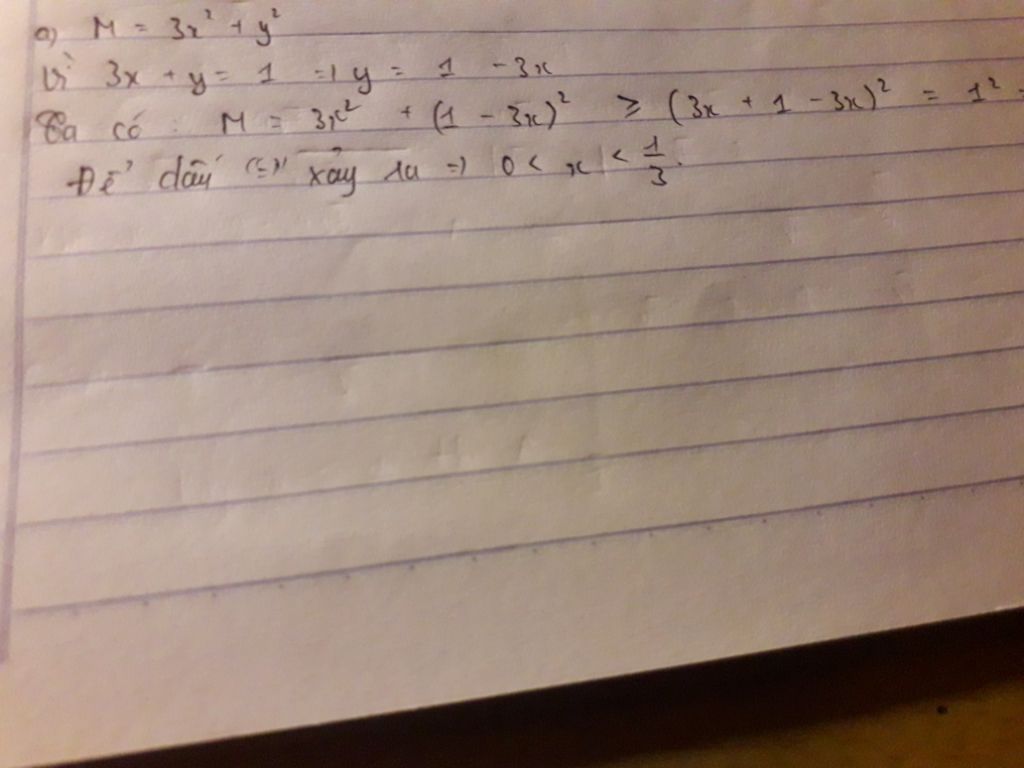 a) M = 3x² + y²
Vì 3x + y = 1 => y = 1 - 3x
Ta có : M = 3x² + (1 - 3x)² ≥ (3x + 1 - 3x)² = 1² =
Để dấu "=" xảy ra => 0 < x < 1/3.